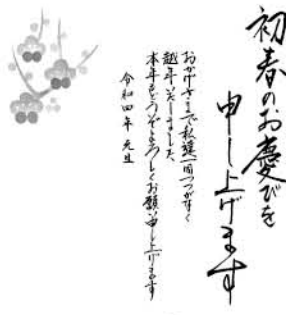 初春のお慶びを
申し上げます
おかげさまで私達一同つつがなく
越年いたしました
本年もどうぞよろしくお願い申し上げます
令和四年 元旦